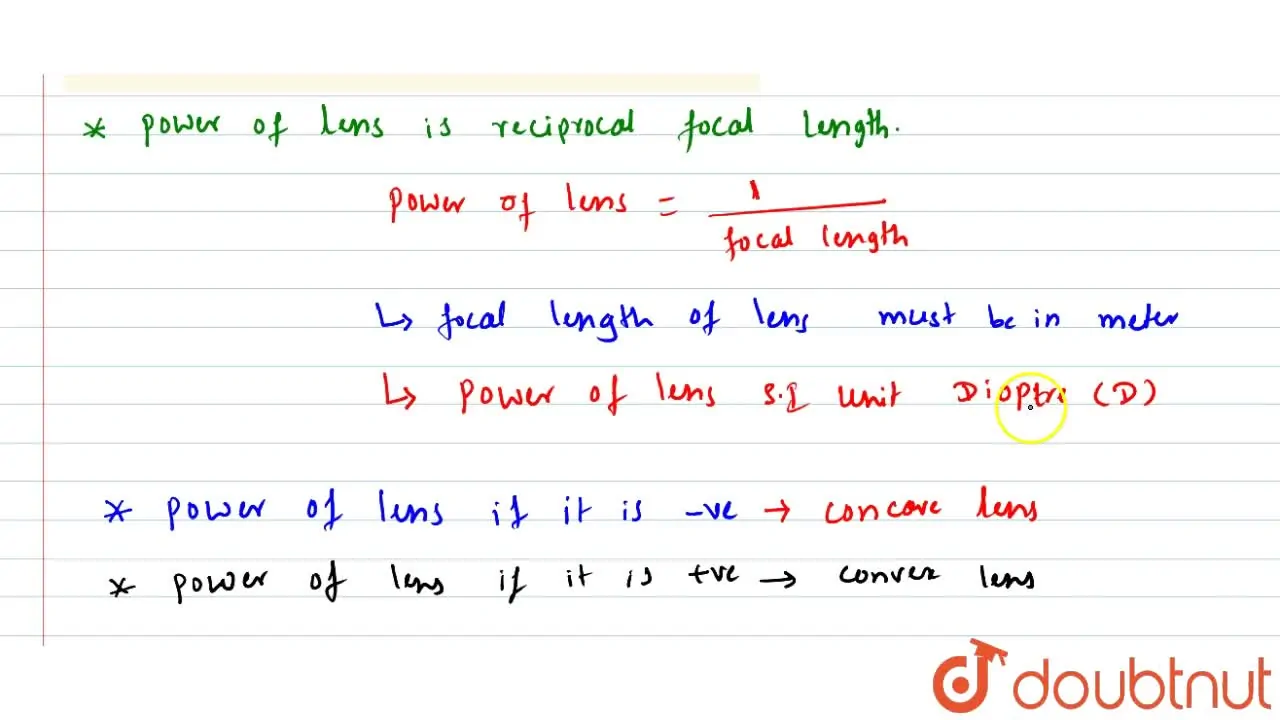 * power of lens is reciprocal focal length.
power of lens = 1
focal length
↳ focal length of lens must be in meter
↳ power of lens S.I unit Dioptre (D)
* power of lens if it is -ve → concave lens
* power of lens if it is +ve → convex lens
doubtnut